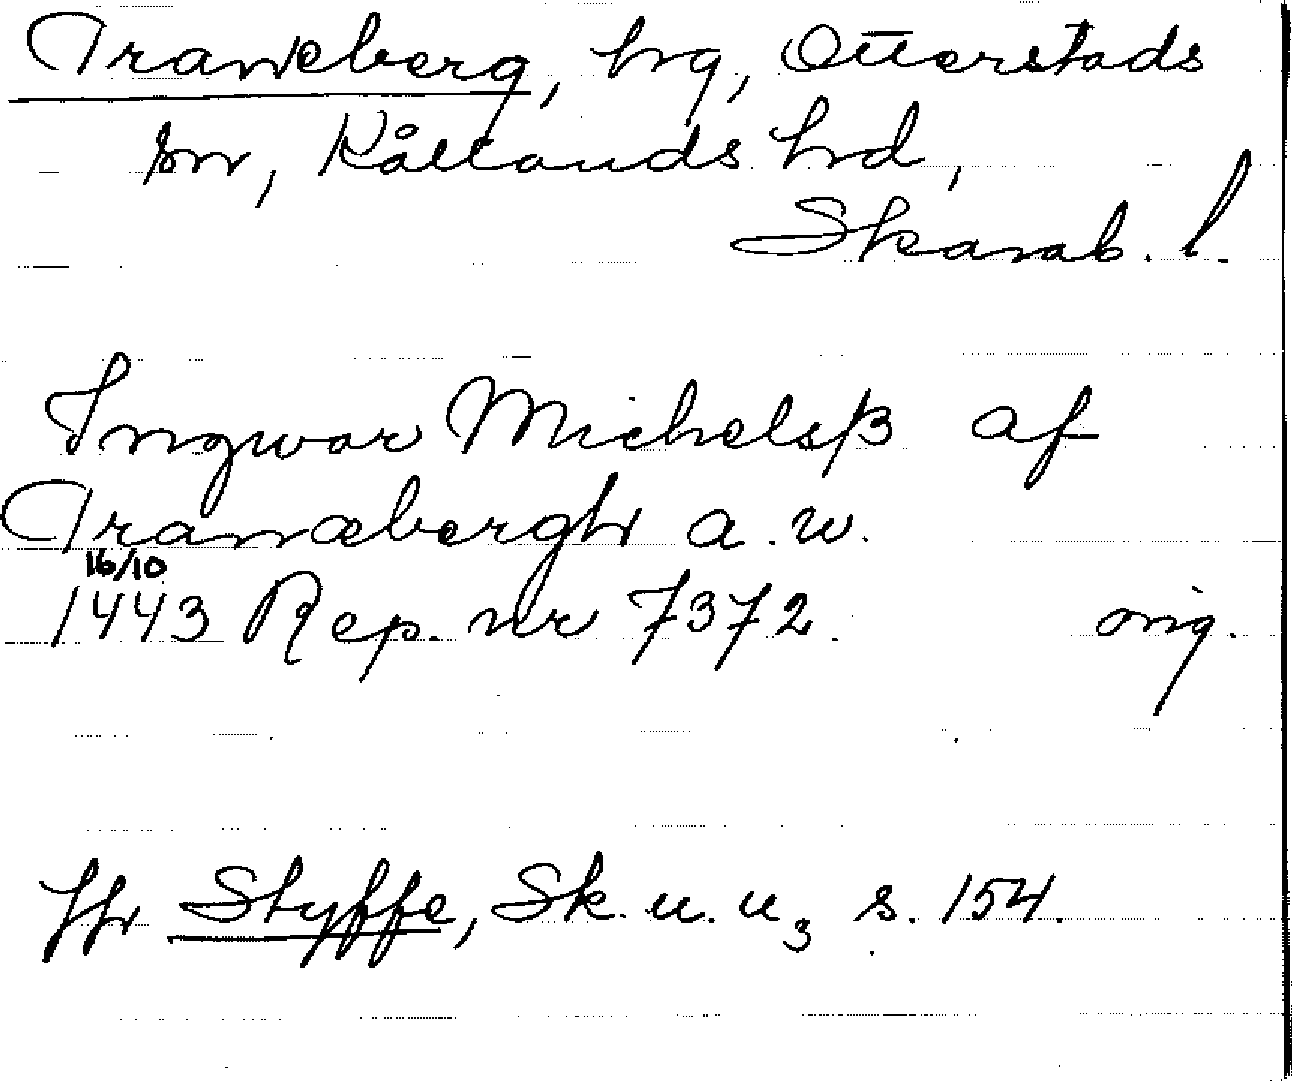 Traneberg, hg, Otterstads
sn, Kållands hd,
Skarab. l.
Ingwar Michelsß af
Tranæbergh a. w.
16/10
1443 Rep. nr 7372. orig.
Jfr Styffe, Sk. u. u3 s. 154.